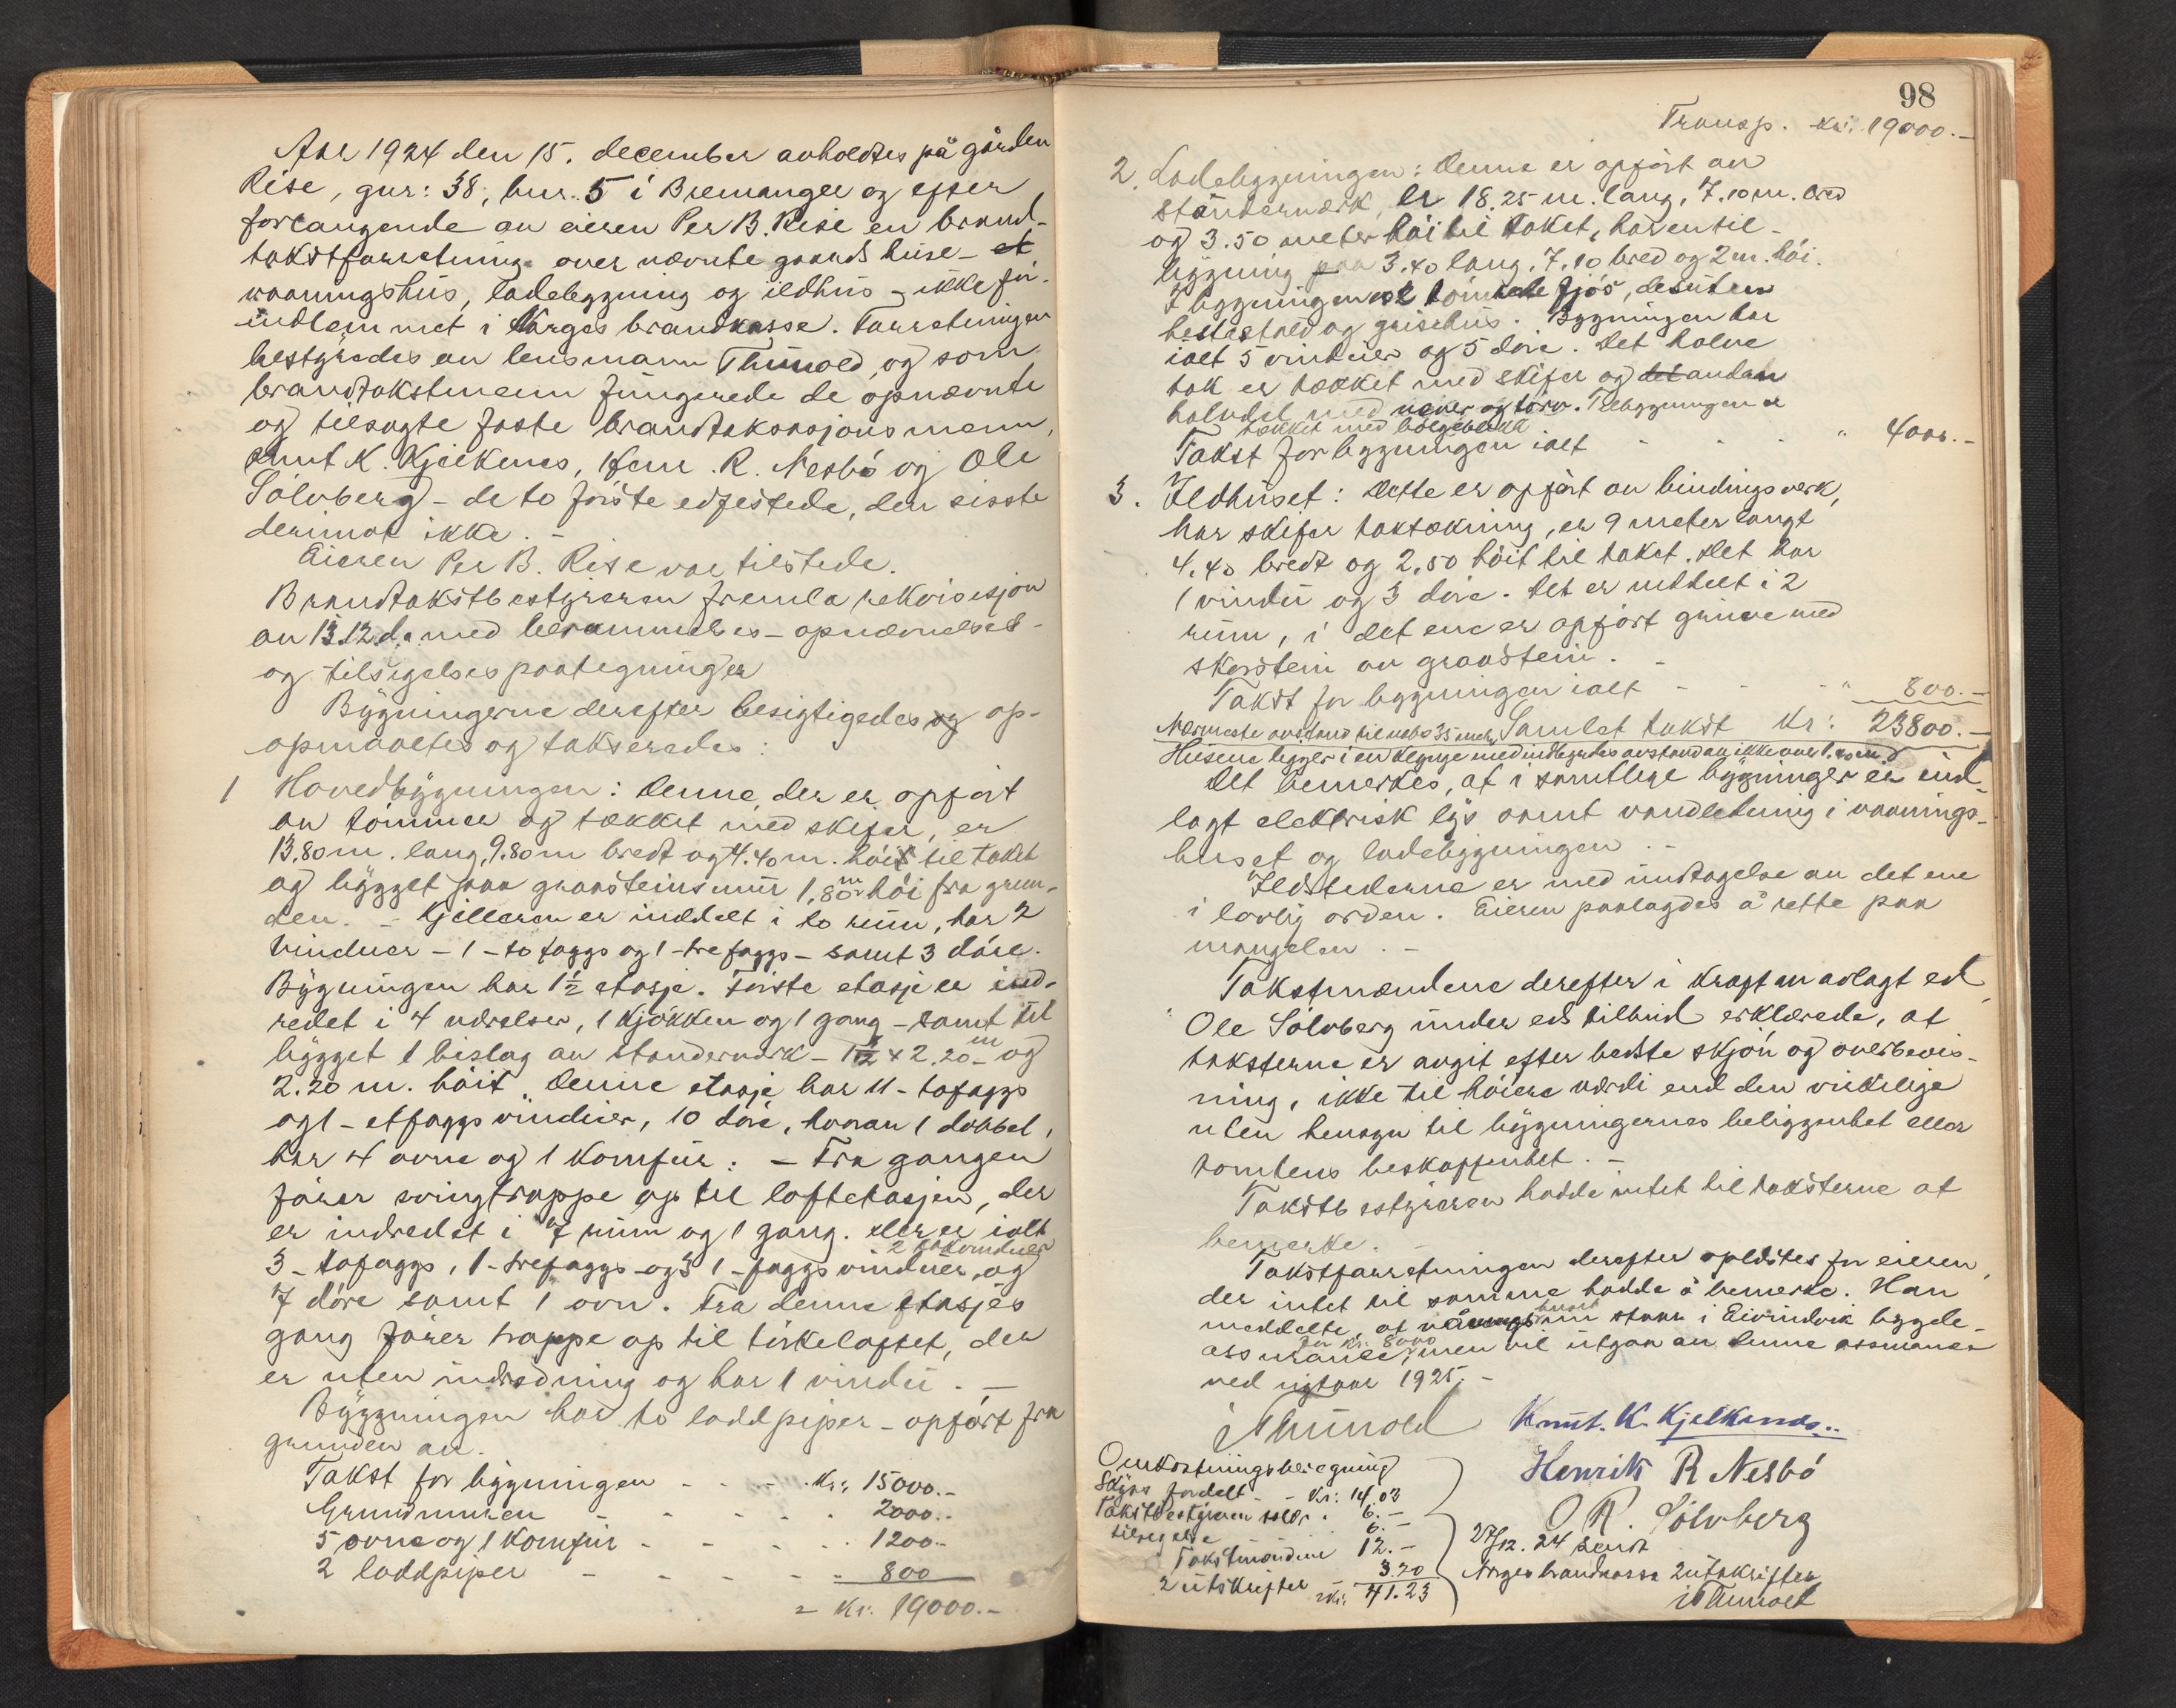 Aar 1924 den 15. december avholdtes på gården
Rise, gnr: 38, bnr. 5 i Bremanger og efter
forlangende av eieren Per B. Rise en brand-
takstforretning over nævnte gaards huse - et
vaaningshus, ladebygning og ildhus - ikke før
indlemmet i Norges brandkasse. Forretningen
bestyredes av lensmann Thunold, og som
brandtakstmenn fungerede de opnævnte
og tilsagte faste brandtaksasjonsmenn,
Knut K. Kjelkenes, Henr. R. Nesbö og Ole
Sólvberg - de to förste edfestede, den sisste
derimot ikke. -
Eieren Per B. Rise var tilstede.
Brandtakstbestyreren fremla rekvisisjon
av 13.12. d.a. med berammelses- opnævnelses-
og tilsigelsespaategninger
Bygningerne derefter besigtigedes og op-
opmaaltes og takseredes:
1 Hovedbygningen: Denne, der er opfört
av tömmer og tækket med skifer, er
13,80 m. lang, 9.80 m bredt og 4.40 m. höit til taket
og bygget paa graasteinsmur 1,80 m höi fra grun-
den. - Kjelleren er inddelt i to rum, har 2
vinduer - 1 - to faggs og 1 - trefaggs - samt 3 döre.
Bygningen har 1½ etasje. Förste etasje er ind-
redet i 4 værelser, 1 kjökken og 1 gang - samt til
bygget 1 bislag av standerverk - 1½ x 2.20 m og
2.20 m. höit. Denne etasje har 11 - tofaggs
og 1 - etfaggs vinduer, 10 döre, hvorav 1 dobbel,
har 4 ovne og 1 komfur. - Fra gangen
förer svingtrappe op til loftetasjen, der
er indredet i 7 rum og 1 gang. Der er ialt
2 takvinduer
3 - tofaggs, 1 - trefaggs og 3 1 - faggs vinduer, og
7 döre samt 1 ovn. Fra denne etasjes
gang förer trappe op til törkeloftet, der
er uten indredning og har 1 vindu. -
Byggningen har to loddpiper - opfört fra
grunden av.
Takst for bygningen - - - kr: 15000.-
Grundmuren - - - 2000.-
5 ovne og 1 komfur - - - 1200.-
2 loddpiper - - - " 800
= Kr. 19000.-
98
Transp. kr: 19000.-
2. Ladebygningen: Denne er opfört av
ständerverk, er 18.25 m. lang, 7.10 m. bred
og 3.50 meter höi til taket, har en til-
bygning paa 3.40 lang, 7.10 bred og 2 m. höi.
I bygningen er tömret fjös, desuten
hestestald og grisehus. Bygningen har
ialt 5 vinduer og 5 döre. Det halve
tak er tækket med skifer og det andan
halvdel med never og törv. Tilbygningen er
tækket med bölgeblikk
Takst for bygningen ialt - - - " 4000.-
3. Ildhuset: Dette er opfört av bindingsverk,
har skifer taktækning, er 9 meter langt
4.40 bredt og 2.50 höit til taket. Det har
1 vindu og 3 döre. Det er inddelt i 2
rum, i det ene er opfört grue med
skorstein av graastein. -
Takst for bygningen ialt - - - " 800.-
Nærmeste avstand til nabo 35 meter Samlet takst Kr: 23800.-
Husene ligger i en klynge med indbyrdes avstand av ikke over
Det bemerkes, at i samtlige bygninger er ind-
lagt elektrisk lys samt vandledning i vaanings-
huset og ladebygningen. -
Ildstederne er med undtagelse av det ene
i lovlig orden. Eieren paalagdes å rette paa
mangelen. -
Takstmændene derefter i kraft av avlagt ed,
Ole Sölvberg under eds tilbud erklærede, at
taksterne er avgit efter bedste skjön og overbevis-
ning, ikke til höiere værdi end den virkelige
uten hensyn til bygningernes beliggenhet eller
tomtens beskaffenhet. -
Takstbestyreren hadde intet til taksterne at
bemerke. -
Takstforretningen derefter oplæstes for eieren,
der intet til samme hadde å bemerke. Han
meddelte, at våningshuset staar i Eivindvik bygde-
for kr. 8000
assurance, men vil utgaa av denne assurance
ved nytaar 1925. -
Thunold
Knut. K. Kjelkenes..
Henrik R Nesbö
O. R. Sölvberg
Omkostningsberegning
Skyss fordelt - - Kr: 14.03
Takstbestyreren saler. 6.-
tilsigelse 6.-
Takstmændene 12.-
2 utskrifter 3.20
= kr. 41.23
27/12. 24 sendt
Norges brandkasse 2 utskrifter
Thunold